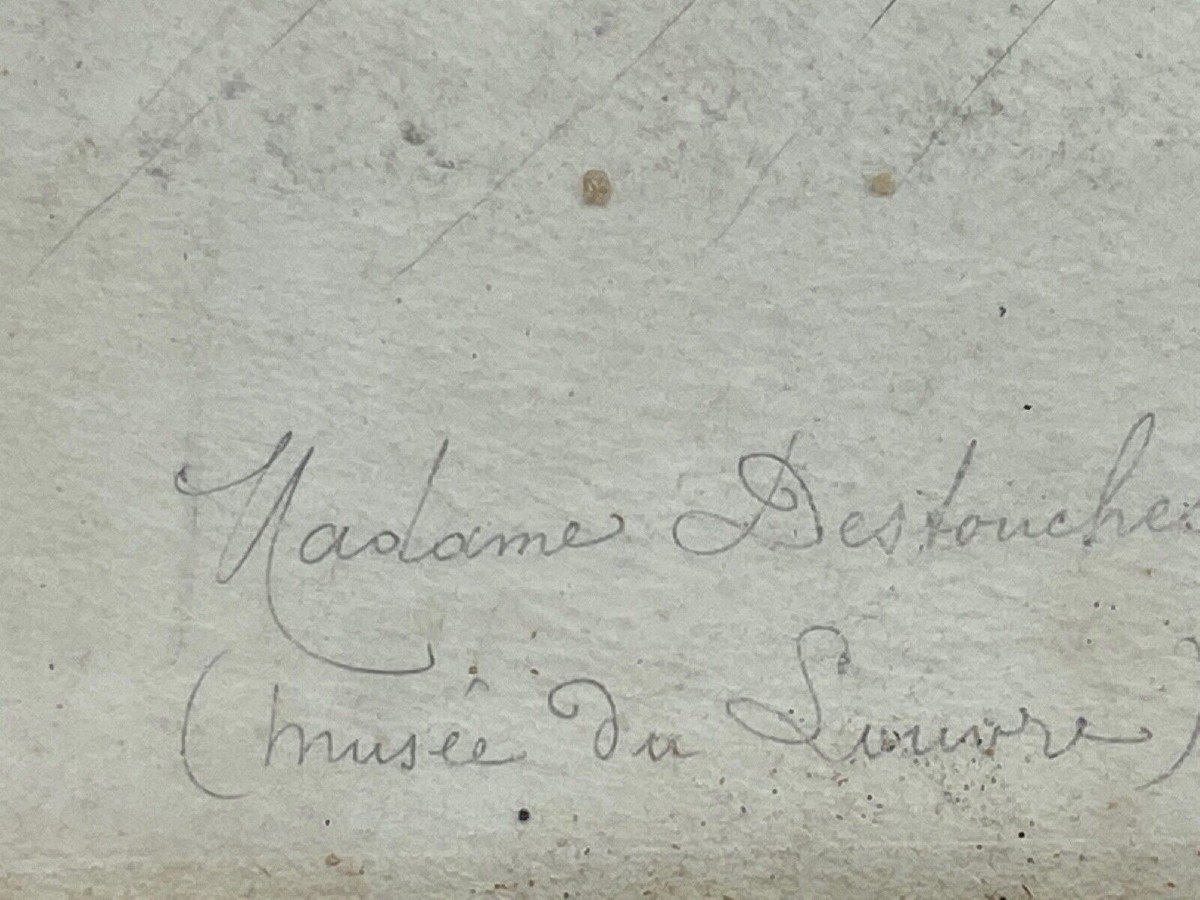 Madame Destouches
(musée du Louvre)